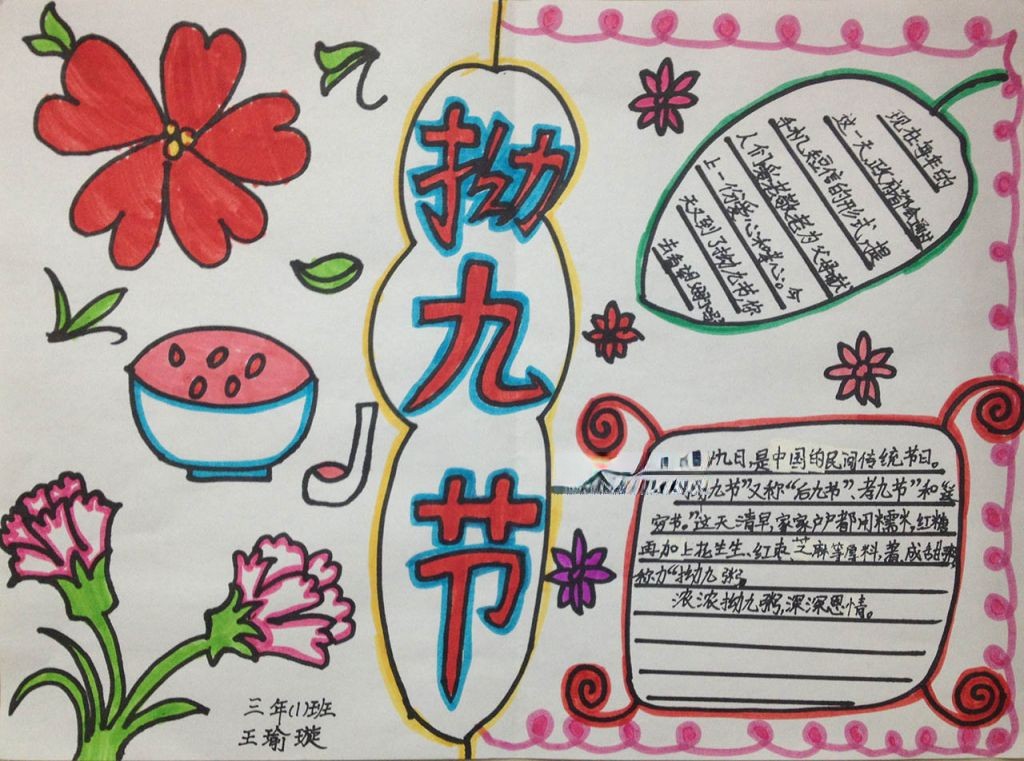 拗九节
现在每年的
这一天,政府都会通过
手机短信的形式,提
人们爱老敬老,为父母献
上一份爱心和孝心。今
天又到了拗九节,你
九日,是中国的民间传统节日。
九节”又称“后九节”、“孝九节”和“送
穷节。”这天清早,家家户户都用糯米,红糖
再加上花生、红枣、芝麻等原料,煮成甜粥,
称为“拗九粥
浓浓拗九粥,深深恩情。
三年(1)班
王瑜璇